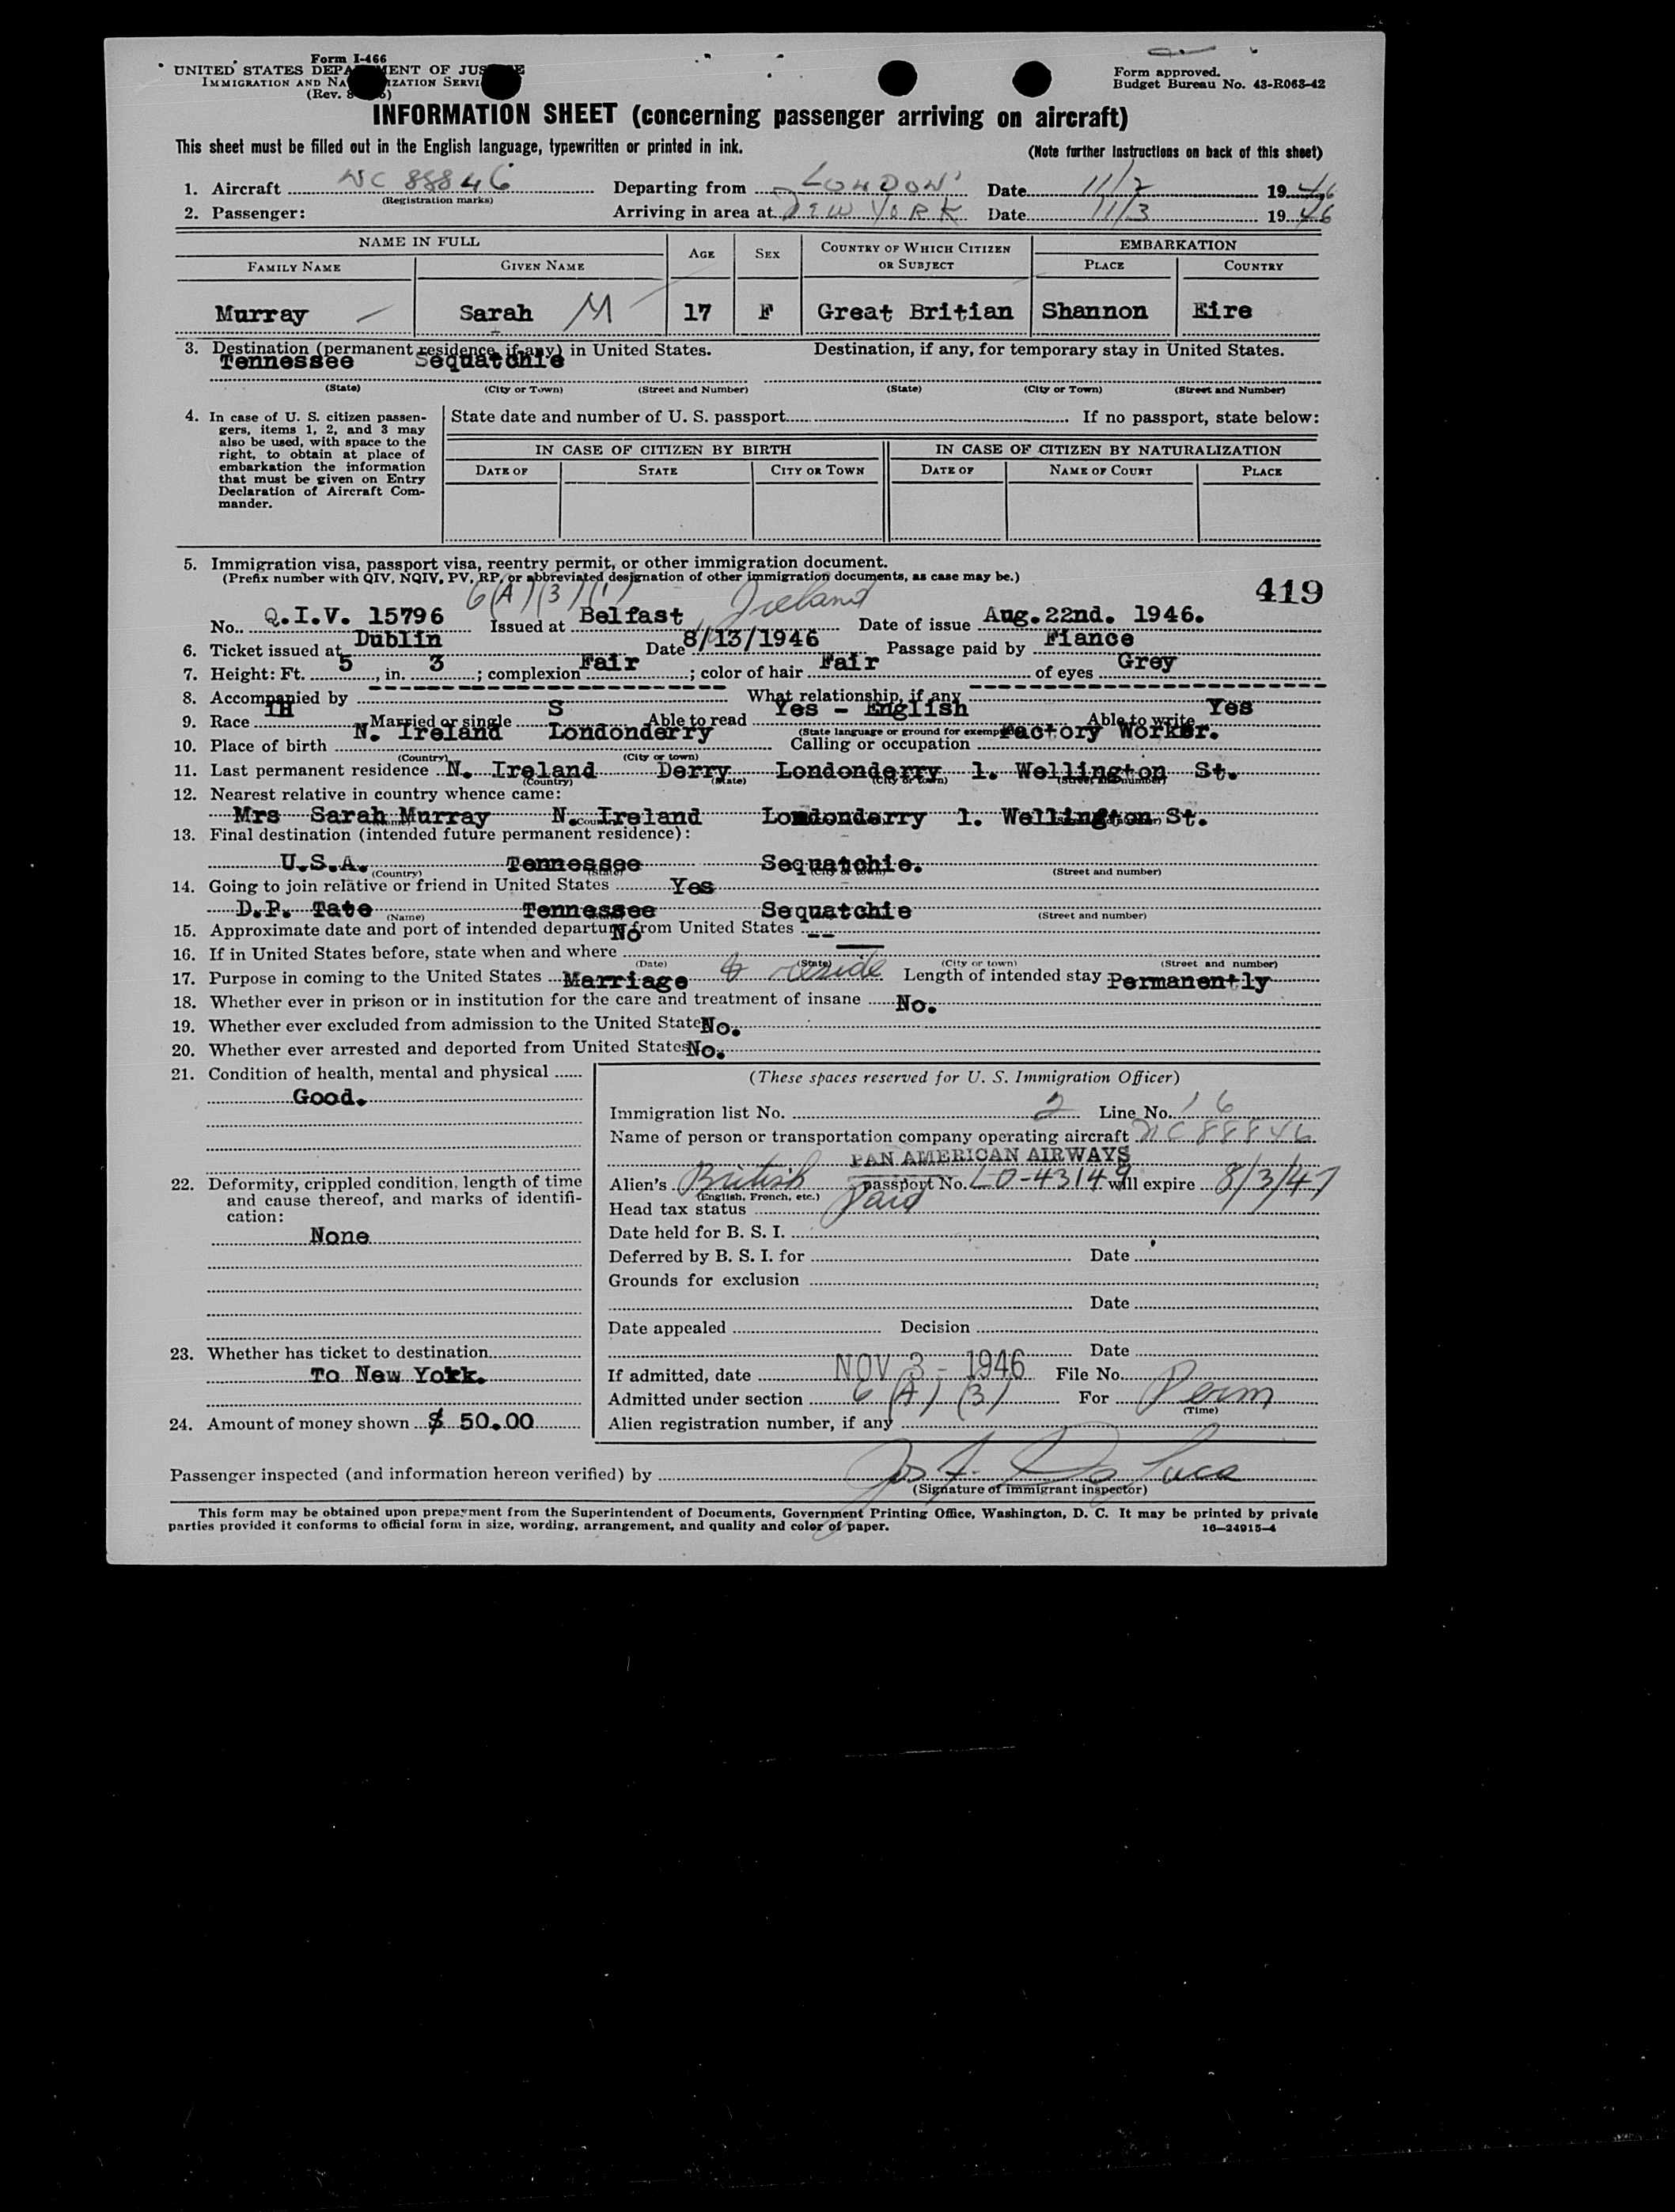 Form I-466
UNITED STATES DEPA MENT OF JUS E
IMMIGRATION AND NA IZATION SERVI
(Rev. 8
Form approved.
Budget Bureau No. 43-R063-42
INFORMATION SHEET (concerning passenger arriving on aircraft)
This sheet must be filled out in the English language, typewritten or printed in ink.
(Note further instructions on back of this sheet)
1. Aircraft NC 88846 Departing from LONDON Date 11/2 1946
(Registration marks)
2. Passenger: Arriving in area at NEW YORK Date 11/3 1946
NAME IN FULL AGE SEX COUNTRY OF WHICH CITIZEN OR SUBJECT EMBARKATION
FAMILY NAME GIVEN NAME PLACE COUNTRY
Murray Sarah M 17 F Great Britian Shannon Eire
3. Destination (permanent residence, if any) in United States. Destination, if any, for temporary stay in United States.
Tennessee Sequatchie
(State) (City or Town) (Street and Number) (State) (City or Town) (Street and Number)
4. In case of U. S. citizen passen-
gers, items 1, 2, and 3 may
also be used, with space to the
right, to obtain at place of
embarkation the information
that must be given on Entry
Declaration of Aircraft Com-
mander.
State date and number of U. S. passport If no passport, state below:
IN CASE OF CITIZEN BY BIRTH IN CASE OF CITIZEN BY NATURALIZATION
DATE OF STATE CITY OR TOWN DATE OF NAME OF COURT PLACE
5. Immigration visa, passport visa, reentry permit, or other immigration document.
(Prefix number with QIV, NQIV, PV, RP, or abbreviated designation of other immigration documents, as case may be.)
419
6(A)(3)(1) Ireland
No. Q.I.V. 15796 Issued at Belfast Date of issue Aug. 22nd. 1946.
6. Ticket issued at Dublin Date 8/13/1946 Passage paid by Fiance
7. Height: Ft. 5, in. 3; complexion Fair; color of hair Fair of eyes Grey
8. Accompanied by What relationship, if any
9. Race IH Married or single S Able to read Yes - English Able to write Yes
(State language or ground for exemption)
10. Place of birth N. Ireland Londonderry Calling or occupation Factory Worker.
(Country) (City or town)
11. Last permanent residence N. Ireland Derry Londonderry 1. Wellington St.
(Country) (State) (City or town) (Street and number)
12. Nearest relative in country whence came:
Mrs Sarah Murray N. Ireland Londonderry 1. Wellington St.
13. Final destination (intended future permanent residence):
U.S.A. Tennessee Sequatchie.
(Country) (State) (City or town) (Street and number)
14. Going to join relative or friend in United States Yes
D.P. Tate Tennessee Sequatchie
(Name) (Street and number)
15. Approximate date and port of intended departure from United States --
16. If in United States before, state when and where No
(Date) (State) (City or town) (Street and number)
17. Purpose in coming to the United States Marriage & reside Length of intended stay Permanently
18. Whether ever in prison or in institution for the care and treatment of insane No.
19. Whether ever excluded from admission to the United States No.
20. Whether ever arrested and deported from United States No.
21. Condition of health, mental and physical
Good.
22. Deformity, crippled condition, length of time
and cause thereof, and marks of identifi-
cation:
None
23. Whether has ticket to destination
To New York.
24. Amount of money shown $ 50.00
(These spaces reserved for U. S. Immigration Officer)
Immigration list No. 2 Line No. 16
Name of person or transportation company operating aircraft NC 88846
PAN AMERICAN AIRWAYS
Alien's British passport No. LO-43149 will expire 8/3/47
(English, French, etc.)
Head tax status Paid
Date held for B. S. I.
Deferred by B. S. I. for Date
Grounds for exclusion
Date
Date appealed Decision
Date
If admitted, date NOV 3 - 1946 File No.
Admitted under section 6(A)(3) For Perm
(Time)
Alien registration number, if any
Passenger inspected (and information hereon verified) by Jos F. De Luca
(Signature of immigrant inspector)
This form may be obtained upon prepayment from the Superintendent of Documents, Government Printing Office, Washington, D. C. It may be printed by private
parties provided it conforms to official form in size, wording, arrangement, and quality and color of paper. 16—24915-4